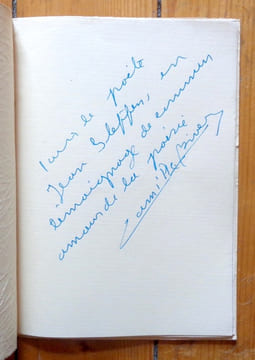 Pour le poète
Jean Steffen, en
témoignage de commun
amour de la poésie
Camille